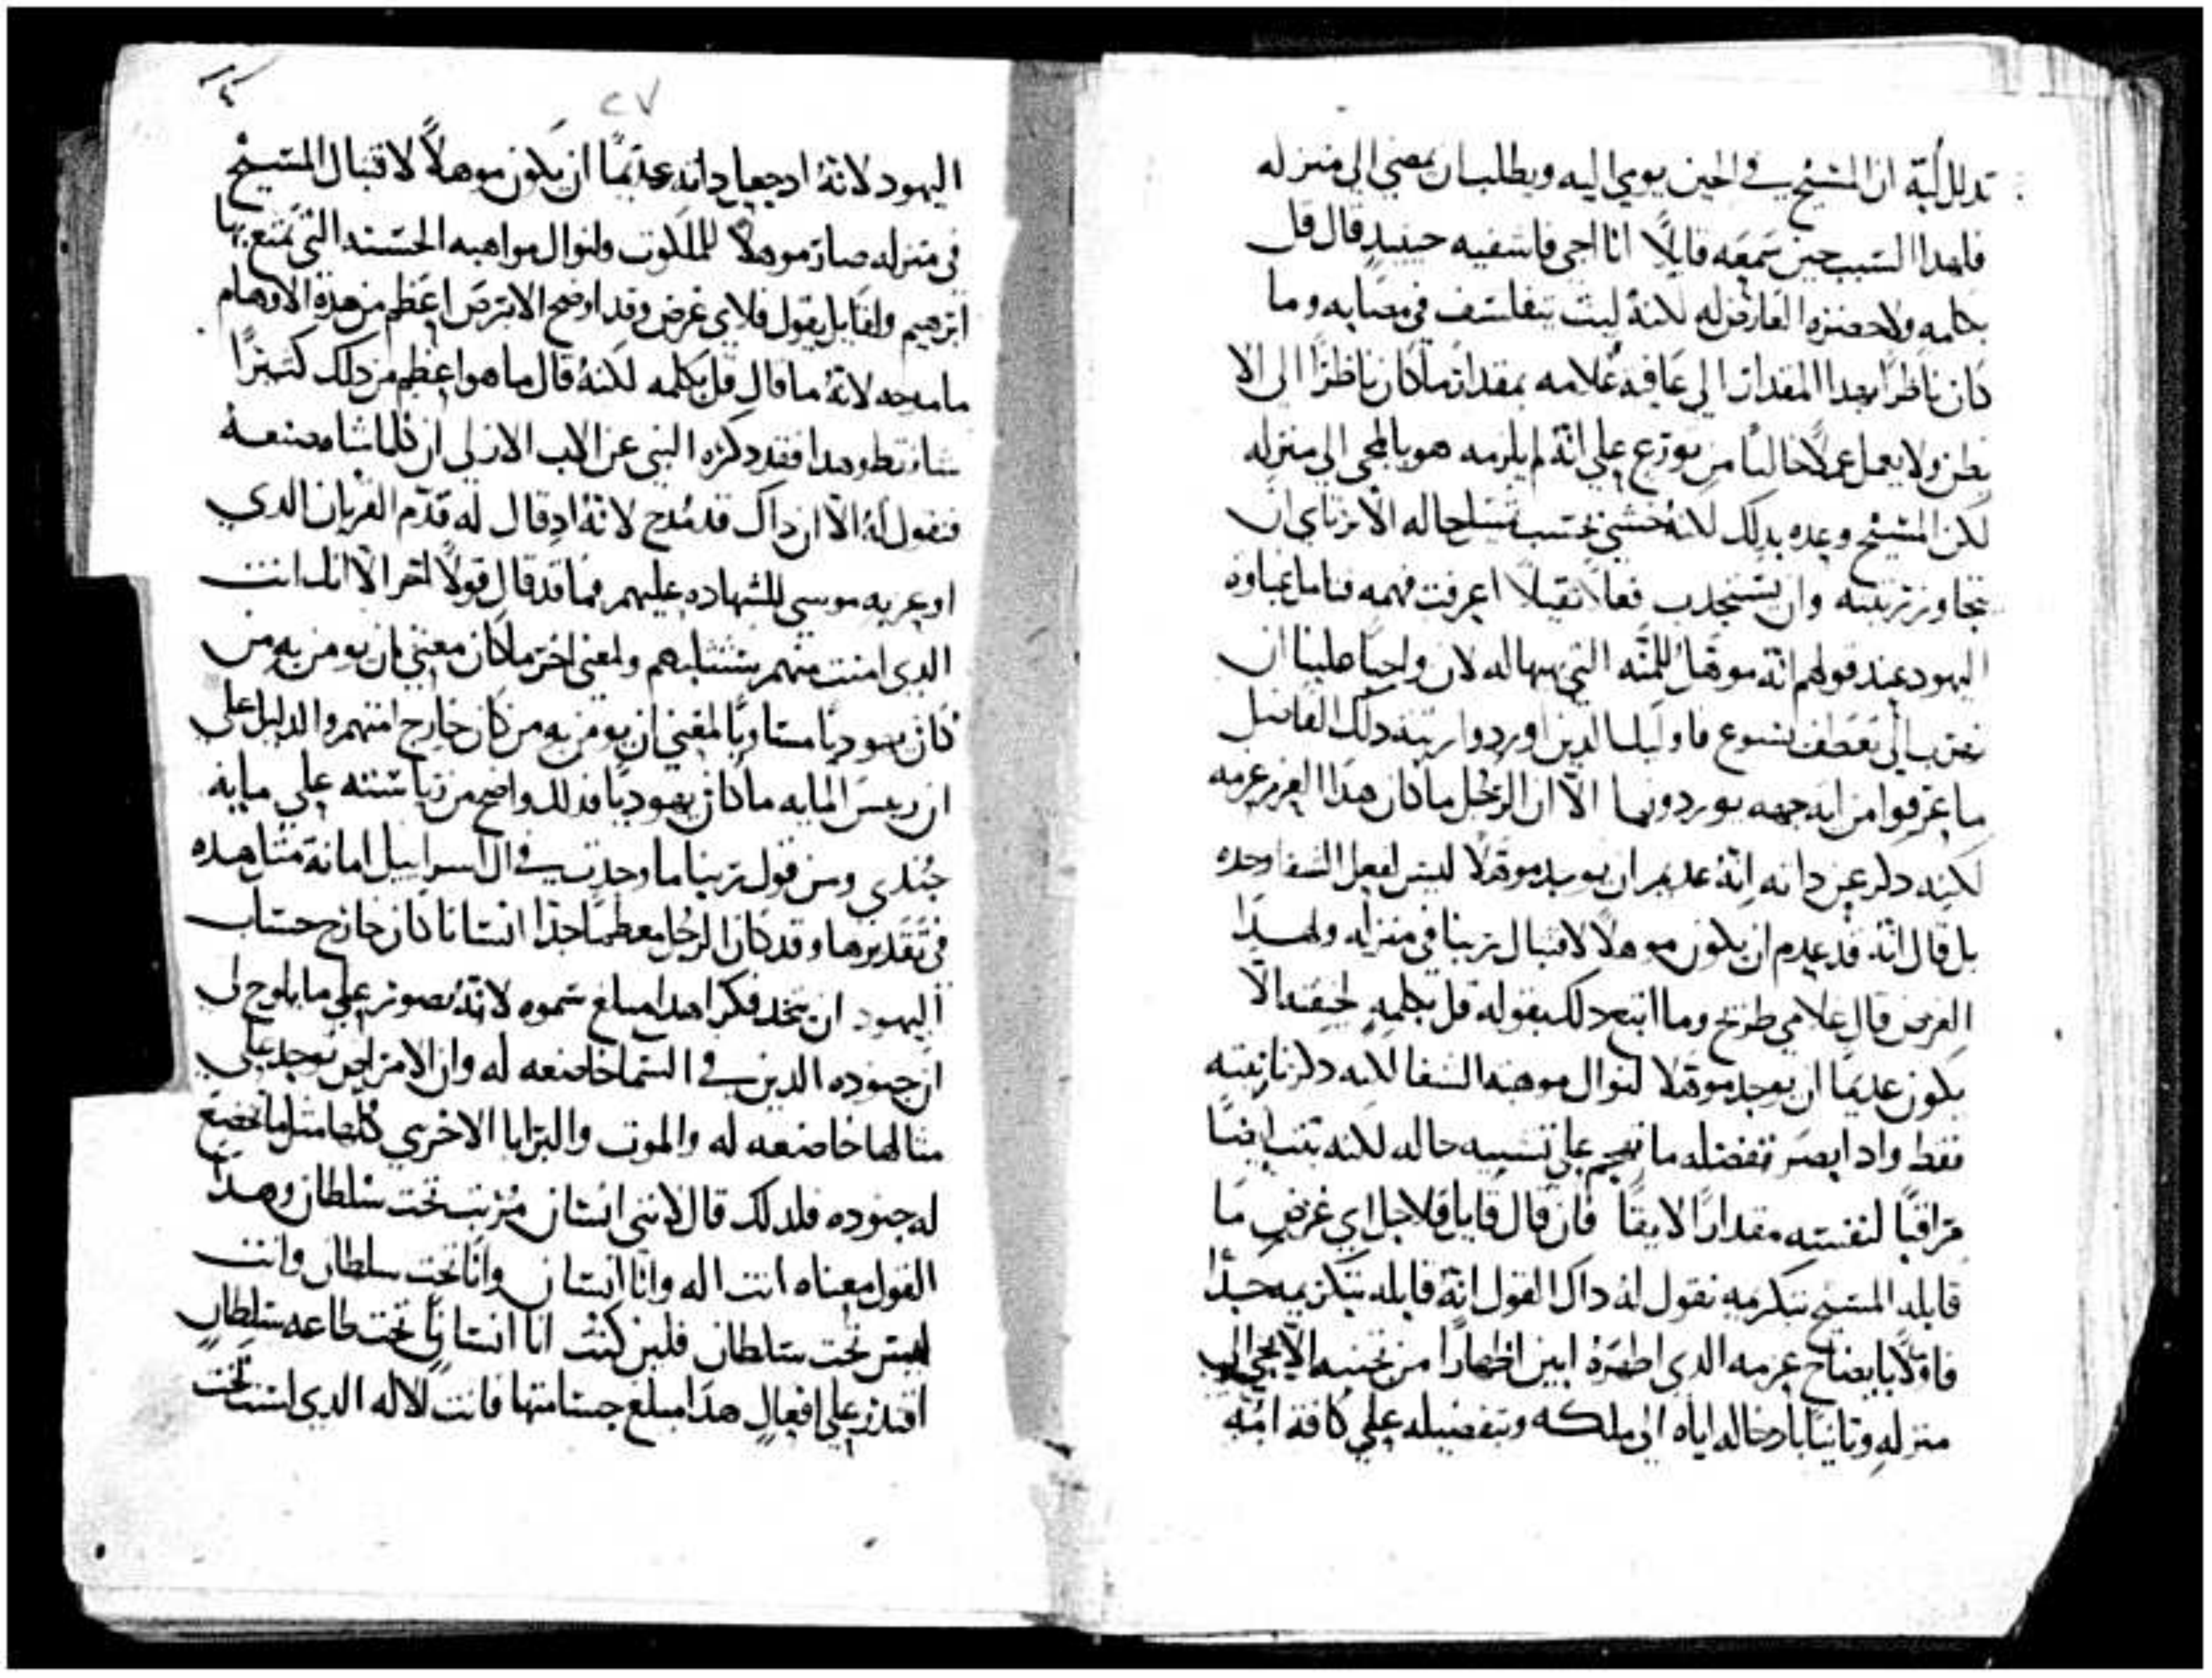 تدلل لُبّة ان المسَيح في الحين يومي اليه ويطلب ان يمضي الي منزله
فلهدا السَبب حين سَمَعَه قايلاً انا اجي فاسَفيه حينيدٍ قال قل
بكلمه ولا حضره العارض له لكنهُ ليث يتفلسَف في مصَابه وما
كان ناظرًا بهدا المقدار الي عَافية غُلامه بمقدار ما كان ناظرًا الي الا
يظن ولا يعمل عملاً خاليًا من تورّع علي انّهُ لم يلزمه هو بالمجي الي منزله
لكن المسَيح وعده بدلك لكنهُ خشي
تجاوز رتبته وان يسَتجدب فعلاً تقيلاً اعرفت فهمه فتامل غباوة
اليهود عند قولهم انّه موهّلُ للمنّه التي لان واجبًا علينا ان
الي تعَطف يسَوع فاوليك الدين اوردوا رتبة دلك الفاضل
ما عَرفوا من اية جهه يوردونها الاّ ان الرجُل ما كان هدا العزم عزمه
لكنه دكر عن داته انّهُ عديم ان يوجد موهّلاً ليسَ لفعل الشفا وحده
بل قال انّهُ قد عدم ان يكون موهلاً لاقتبال ربنا في منزله ولهدا
الغرض قال غلامي طريح وما اتبع دلك بقوله قل بكلمه لخيفته الاّ
يكون عديمًا ان يوجد موهّلا لنوال موهبة الشفا لكنه دكر نازلته
فقط واد ابصَر تفضله ما هجم علي حاله لكنه تبت ايضًا
مَراقبًا لنفسَه مقدارًا لايقًا فان قال قايلٌ فلاجل اي غرضٍ مَا
قابله المسَيح بتكرمه نقول لهُ داك القول انّهُ قابله بتكرمه جدًّا
فاوّلاً بايضاح عزمه الدي اظهَرهُ ابين اظهارًا من تجنبه الاّ يجي الي
منزلهِ وتانيًا بادخاله اياه الي ملكه وبتفضيله علي كافة امّة
٢٧
اليهود لانهُ اد جعل داته عديمًا ان يكون موهلاً لاقتبال المسَيح
في منزله صار موهلاً للملكوت ولنوال مواهبه الحسَنه التي تمتع بها
ابرهيم ولقايل يقول فلاي غرض وقد اوضح الابرص اعظم من هده الاوهام
ما مدحه لانهُ ما قال قل بكلمه لكنهُ قال ما هو اعظم من دلك كثيرًا
شا فقط وهدا فقد دكره النبي عن الاب الازلي ان كلما شا صنعه
فنقول لهُ الاّ ان داك قد مُدح لانهُ اد قال له قدّم القربان الدي
اوعز به موسي للشهاده عليهم فما قد قال قولاً اخر الاّ انك انت
الدي امنت منهم بتتلبهم ولمعني اخر ما كان معنَي بان يومن به من
كان يهوديًا مسَاويًا لمعني ان يومن به من كان خارج امتهم والدليل علي
ان رييسَ المايه ما كان يهوديًا فدلك واضح من رياسَته علي مايه
جُندي ومن قول ربنا ما وجدت في ال اسراييل امانة مثل هده
في تقديرها وقد كان الرجل معظمًا جدًا انسَانًا كان خارج حسَاب
اليهود ان يتخد فكرًا هدا مبلغ سَموه لانّهُ تصور علي ما يلوح لي
ان جنوده الدين في السَما خاضعه له وان الامراض توجد علي
مثالها خاضعه له والموت والبرايا الاخري كلها مثل ما تخضع
له جنوده فلدلك قال لانني انسَان مُرتب تحت سَلطان وهدا
القول معناه انت اله وانا انسَان وانا تحت سلطان وانت
ليسَ تحت سَلطان فلين كنت انا انسَانًا تحت طاعه سَلطانٍ
اقتدر علي افعالٍ هدا مبلغ جسَامتها فانت الاله الدي لست تحت